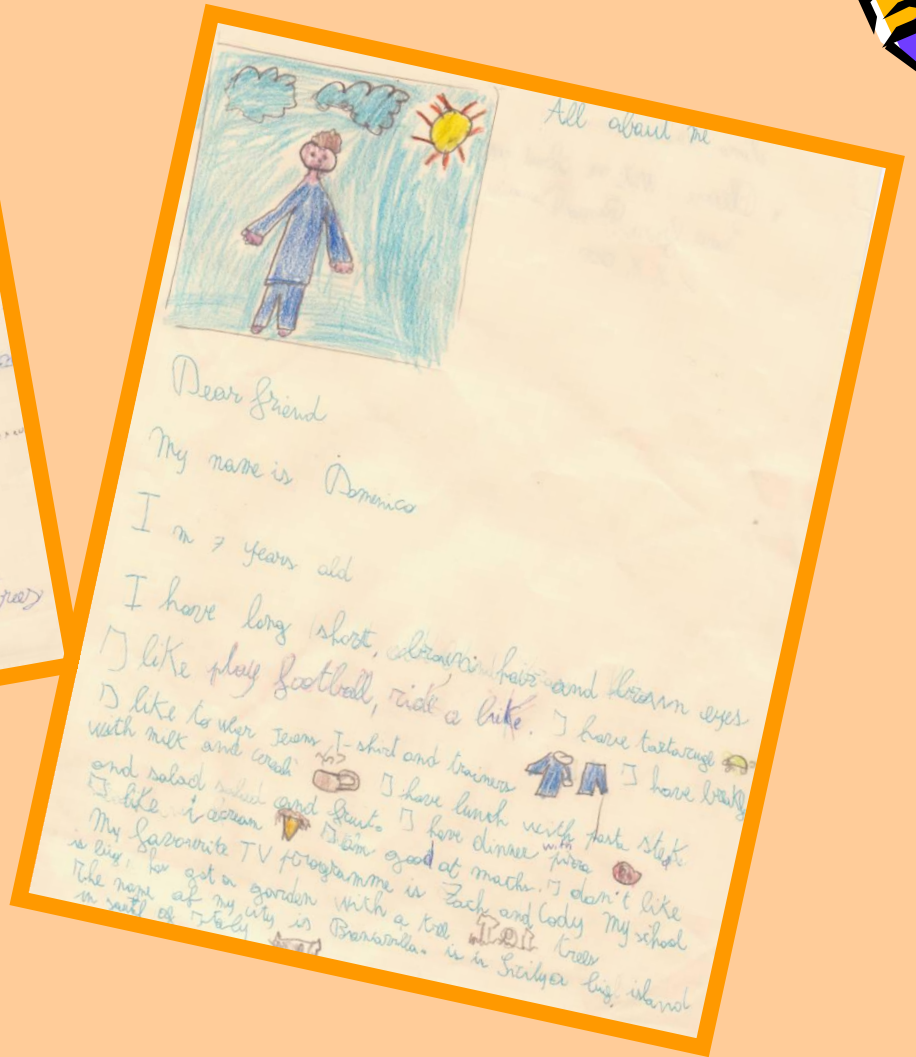 All about me
Dear friend
My name is Domenico
I m 7 years old
I have long short, brown hair and brown eyes
I like play football, ride a bike. I have tartaruge
I like to wear Jeans T-shirt and trainers I have
with milk and I have lunch with pasta
and salad salad and fruit. I have dinner with pizza
I like icream I'am good at maths. I don't like
My favourite TV programme is Zack and Cody My school
is big, has got a garden with a tree trees
The name of my city is is in Sicily a big island
in south of Italy